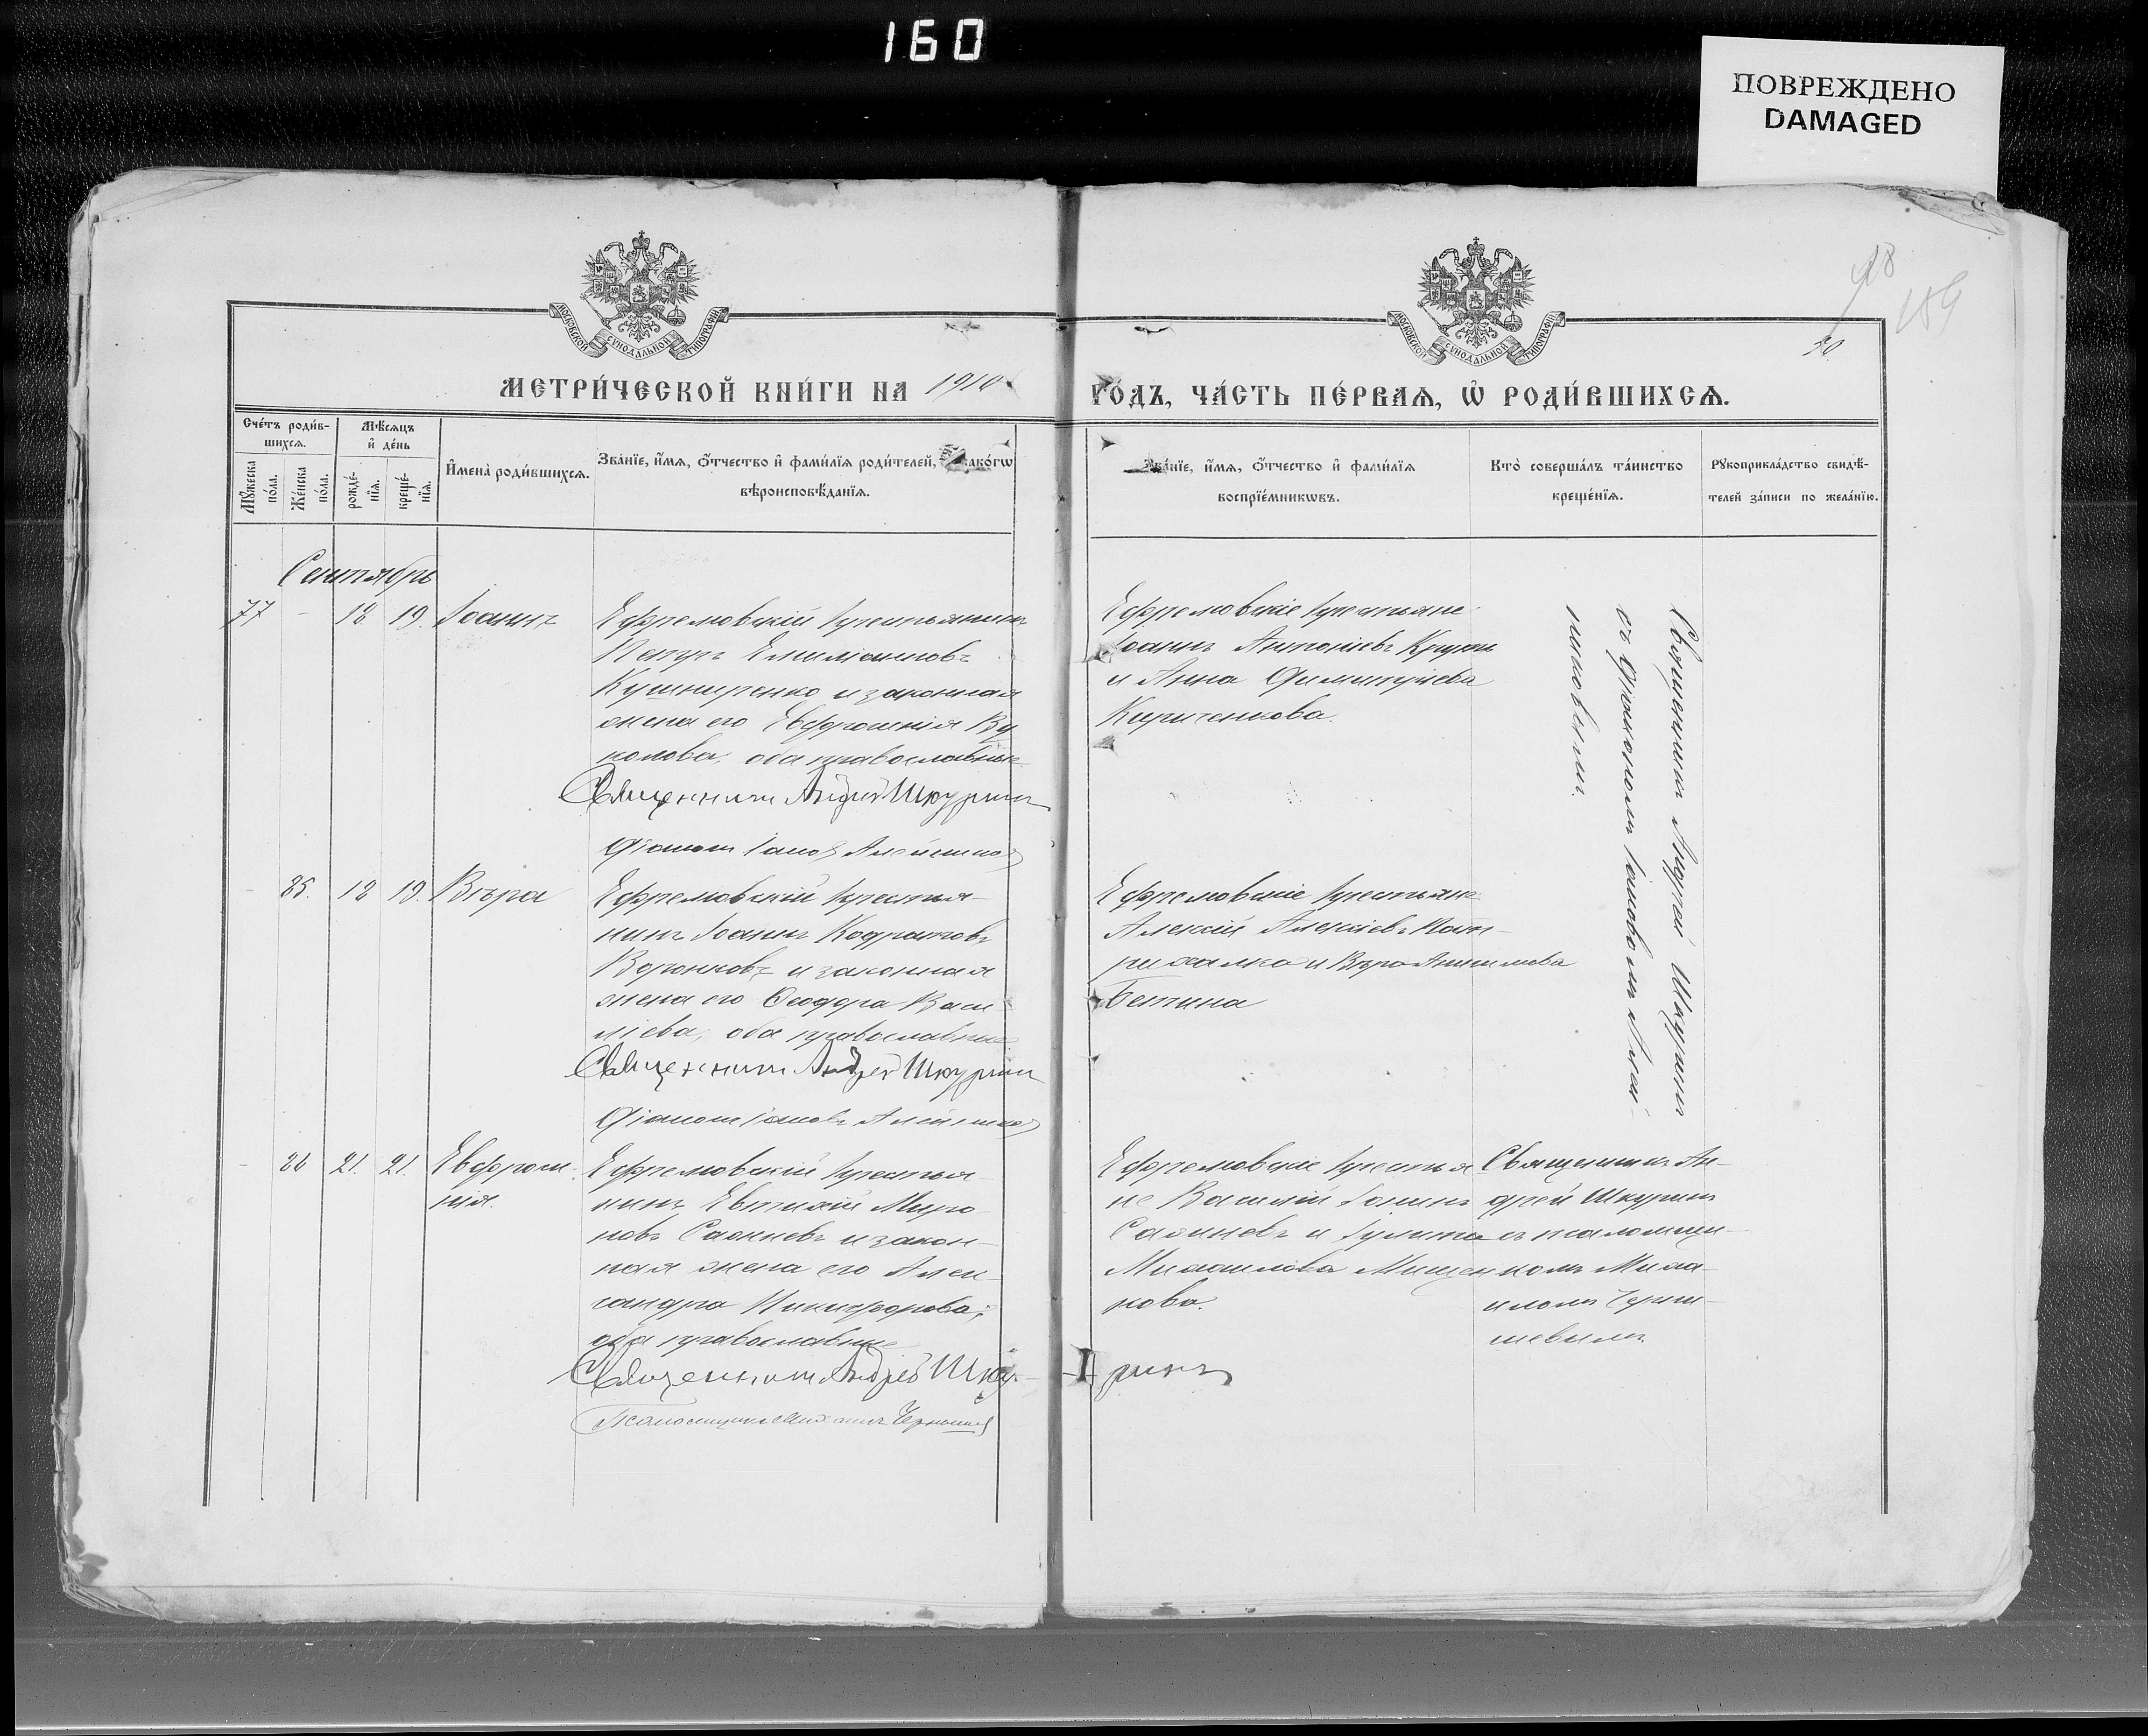 160
ПОВРЕЖДЕНО
DAMAGED
159
МОСКОВСКОЙ СѴНОДАЛЬНОЙ ТИПОГРАФІИ
МОСКОВСКОЙ СѴНОДАЛЬНОЙ ТИПОГРАФІИ
МЕТРИ́ЧЕСКОЙ КНИ́ГИ НА 1910 ГО́ДЪ, ЧА́СТЬ ПЕ́РВАѦ, Ѡ҆ РОДИ́ВШИХСѦ.
Сче́тъ роди́в-
шихсѧ.
Мꙋ́жеска по́ла.
Же́нска по́ла.
Мѣ́сѧцъ и҆ де́нь
рожде́-нїѧ.
креще́-нїѧ.
И҆мена̀ роди́вшихсѧ.
Зва́нїе, и҆́мѧ, ѻ҆́тчество и҆ фами́лїѧ роди́телей, како́гѡ
вѣроисповѣ́данїѧ.
Зва́нїе, и҆́мѧ, ѻ҆́тчество и҆ фами́лїѧ
воспрїе́мникѡвъ.
Кто̀ соверша́лъ та́инство
креще́нїѧ.
Рꙋкоприкла́дство свидѣ́-
телей за́писи по жела́нїю.
Сентябрь
77 - 18 19. Іоаннъ
Ефремовскій крестьянинъ
Петръ
Кушниренко и законная
жена его Евфросинія Ву
колова, оба православные
Священникъ Андрей Шкуринъ
Діаконъ Іаковъ Алейников
Ефремовскіе крестьяне
Іоаннъ Антоніевъ
и Анна Димитріева
Кириченкова.
Священникъ Андрей Шкуринъ
съ діакономъ Іаковомъ Алей-
никовымъ.
- 85. 18 19. Вѣра
Ефремовскій крестья-
нинъ Іоаннъ Кодратовъ
Воронковъ и законная
жена его Ѳеодора Васи
ліева, оба православные
Священникъ Андрей Шкуринъ
Діаконъ Іаковъ Алейников
Ефремовскіе крестьяне
Алексій Алексіевъ
и Вѣра
- 86 21. 21. Евфроси-
нія.
Ефремовскій крестья
нинъ Евтихій Миро
новъ и закон-
ная жена его Алек-
сандра Никифорова;
оба православные
Священникъ Андрей Шку-
ринъ
Псаломщикъ Михаилъ Чернышев
Ефремовскіе крестья
не Василій
и Іулитта
Михаилова Мищен
кова.
Священникъ Ан-
дрей Шкуринъ
съ псаломщи-
комъ Миха-
иломъ Черны-
шевымъ